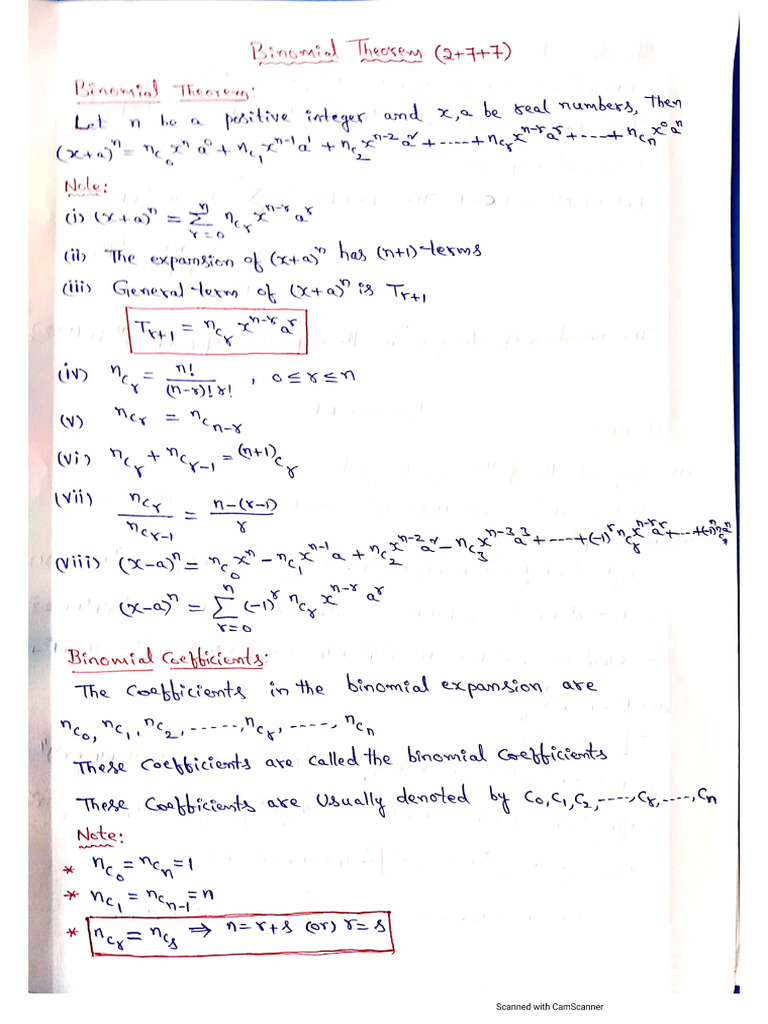 Binomial Theorem (2+7+7)
Binomial Theorem:
Let n be a positive integer and x,a be real numbers, Then
(x+a)ⁿ = nC₀ xⁿ a⁰ + nC₁ xⁿ⁻¹ a¹ + nC₂ xⁿ⁻² a² + ---- + nCᵣ xⁿ⁻ʳ aʳ + ---- + nCₙ x⁰ aⁿ
Note:
(i) (x+a)ⁿ = Σ_{r=0}^{n} nCᵣ xⁿ⁻ʳ aʳ
(ii) The expansion of (x+a)ⁿ has (n+1)-terms
(iii) General term of (x+a)ⁿ is Tᵣ₊₁
Tᵣ₊₁ = nCᵣ xⁿ⁻ʳ aʳ
(iv) nCᵣ = n!/((n-r)! r!) , 0≤r≤n
(v) nCᵣ = nCₙ₋ᵣ
(vi) nCᵣ + nCᵣ₋₁ = (n+1)Cᵣ
(vii) nCᵣ/nCᵣ₋₁ = (n-(r-1))/r
(viii) (x-a)ⁿ = nC₀ xⁿ - nC₁ xⁿ⁻¹ a + nC₂ xⁿ⁻² a² - nC₃ xⁿ⁻³ a³ + ---- + (-1)ʳ nCᵣ xⁿ⁻ʳ aʳ + ---- + (-1)ⁿ nCₙ aⁿ
(x-a)ⁿ = Σ_{r=0}^{n} (-1)ʳ nCᵣ xⁿ⁻ʳ aʳ
Binomial Coefficients:
The coefficients in the binomial expansion are
nC₀, nC₁, nC₂, -----, nCᵣ, ----, nCₙ
These coefficients are called the binomial coefficients
These coefficients are usually denoted by C₀, C₁, C₂, ----, Cᵣ, ----, Cₙ
Note:
* nC₀ = nCₙ = 1
* nC₁ = nCₙ₋₁ = n
* nCᵣ = nCₛ ⇒ n = r+s (or) r = s
Scanned with CamScanner